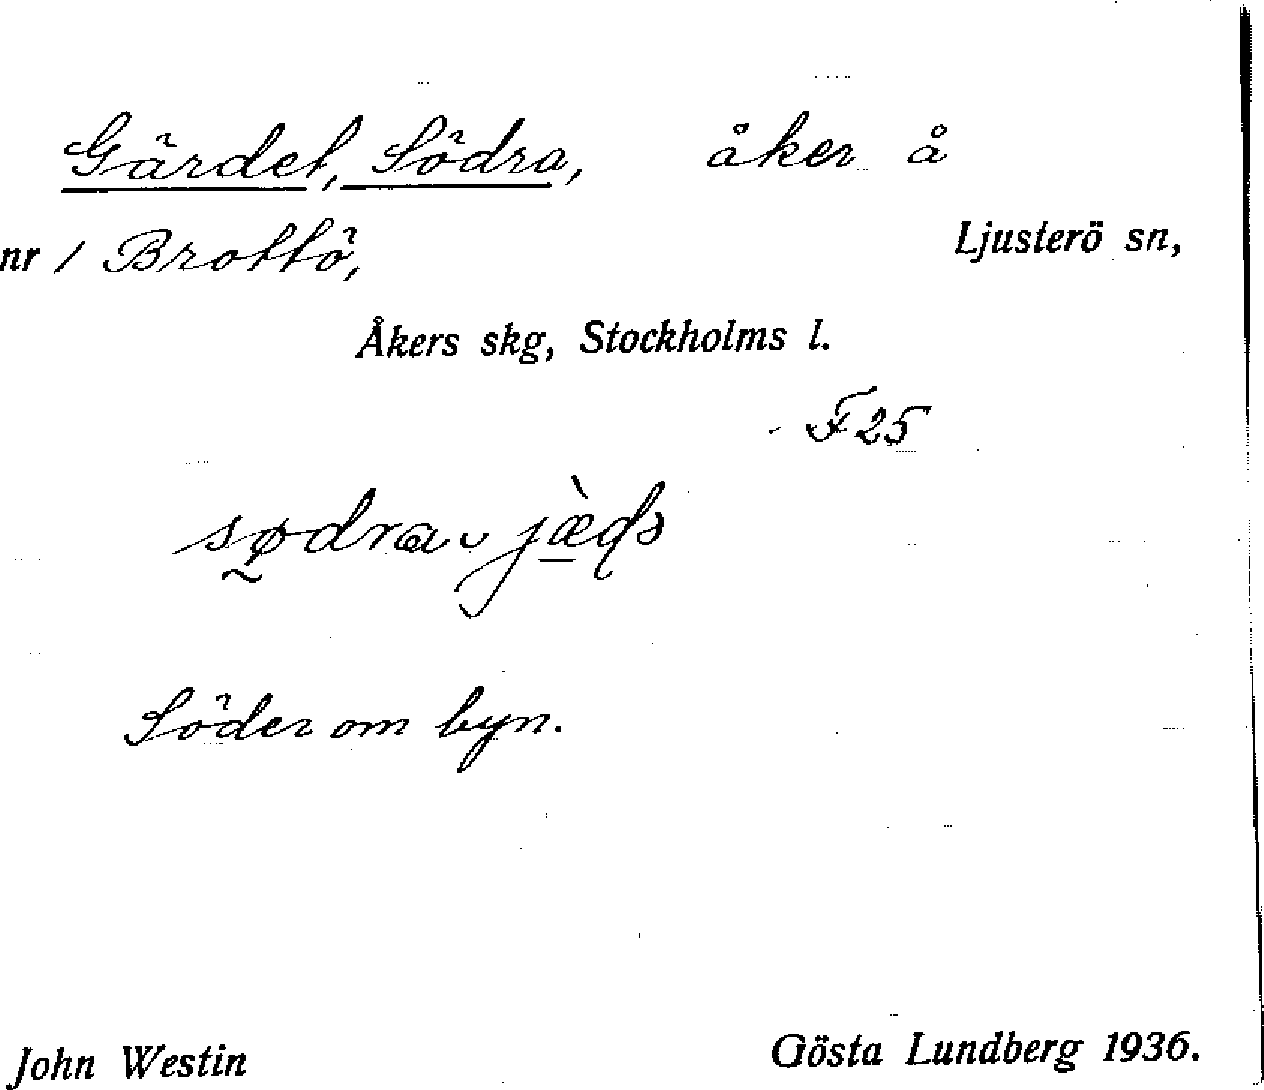 Gärdet, Södra, åker å
nr 1 Brottö, Ljusterö sn,
Åkers skg, Stockholms l.
F 25
Söder om byn.
John Westin Gösta Lundberg 1936.